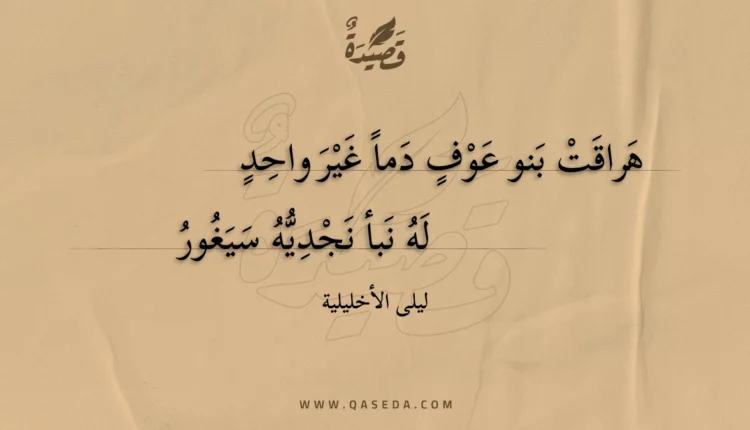 قَصِيدَةٌ
هَراقَتْ بَنو عَوْفٍ دَماً غَيْرَ واحِدٍ
لَهُ نَبأ نَجْدِيُّهُ سَيَغُورُ
ليلى الأخليلية
WWW.QASEDA.COM